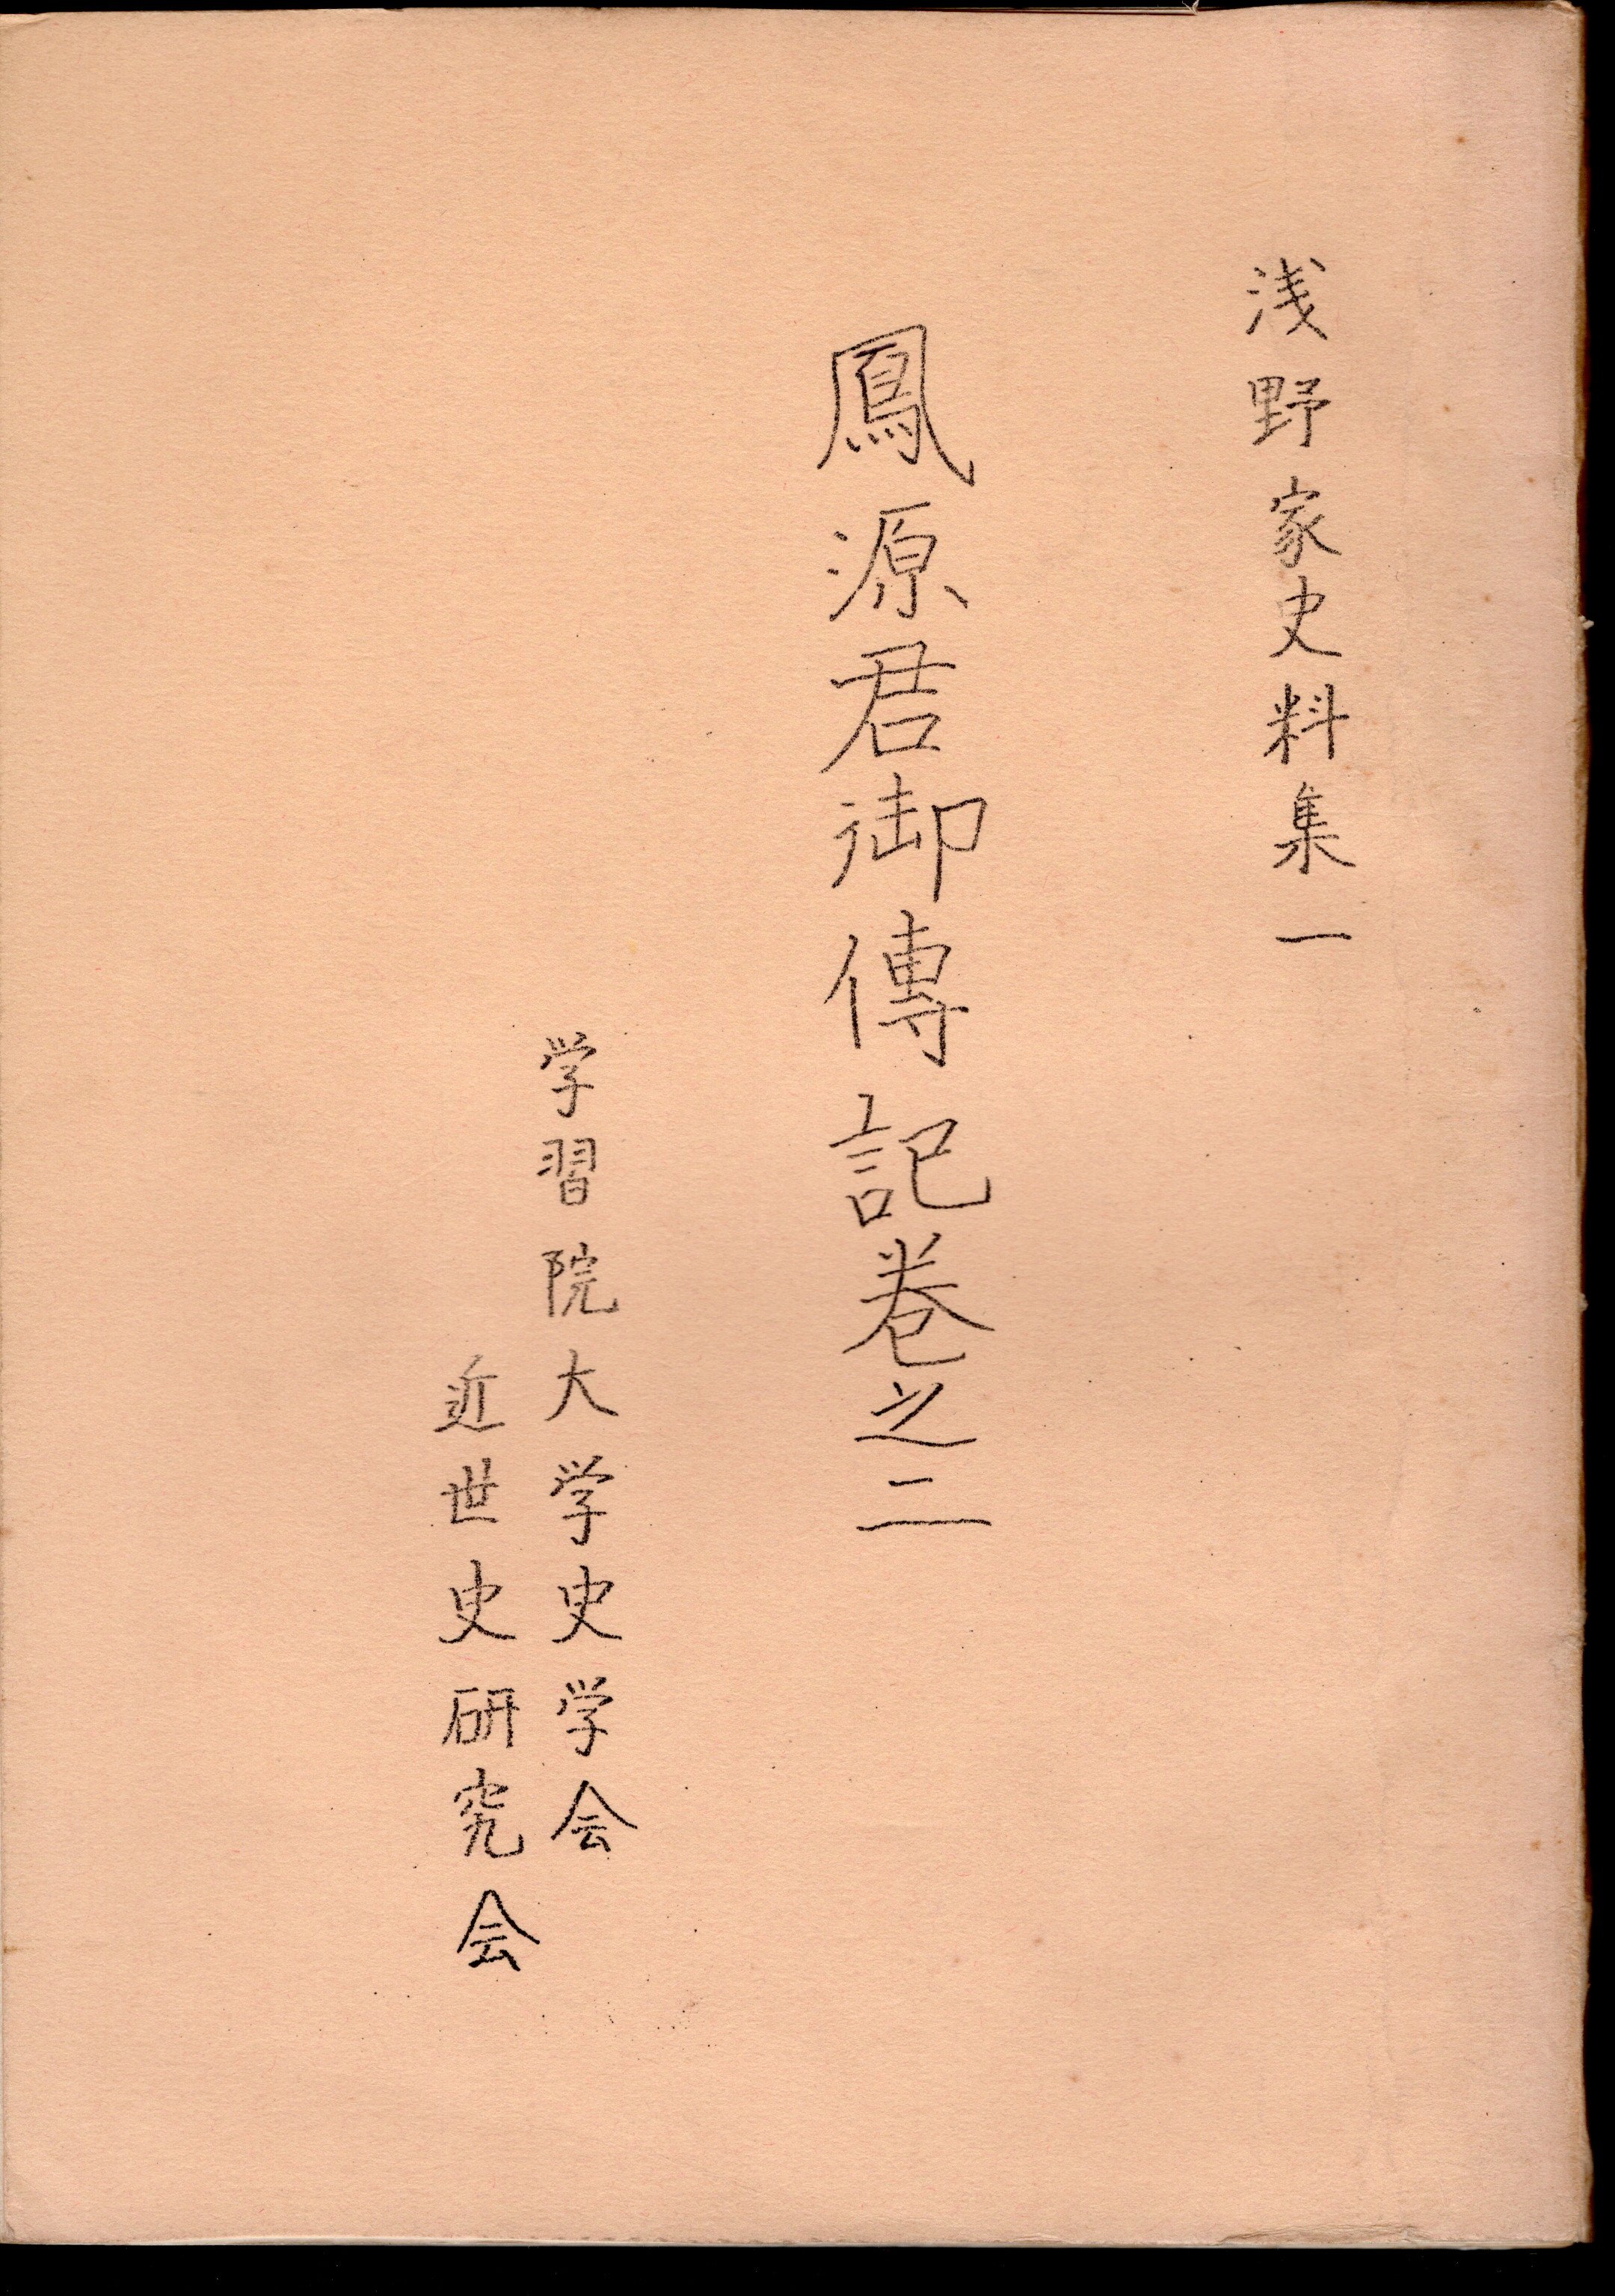 浅野家史料集一
鳳源君御傳記巻之二
学習院大学史学会
近世史研究会